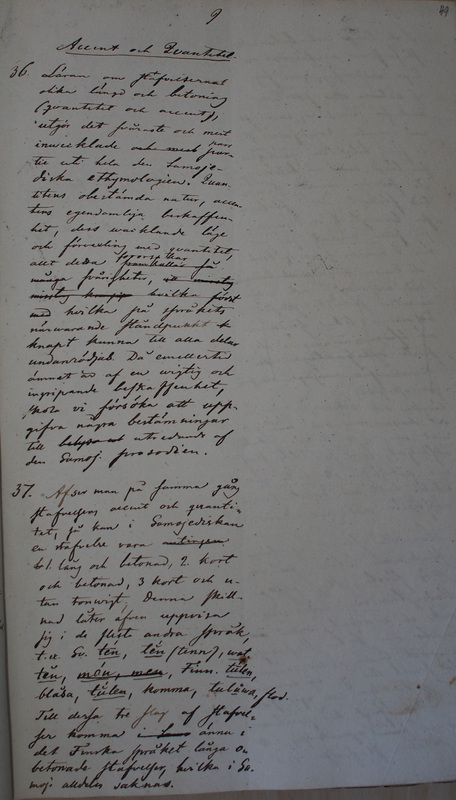 9
49
Accent och Qvantitet.
36. Läran om stafvelsernas
olika längd och betoning
(qvantitet och accent),
utgör det svåraste och mest
inwecklade och mest par-
tie uti hela den Samoje-
diska ethymologien. Qvan-
titetens obestämda natur, accen-
tens egendomliga beskaffen-
het, dess wacklande läge
och förvexling med qvantitet,
allt detta framkallar så
många svårigheter, hvilka först
med hvilka på språkets
närwarande ståndpunkt
knapt kunna till alla delar
undanrödjas. Då emellertid
ämnet är af en wigtig och
ingripande beskaffenhet,
skola vi försöka att upp-
gifva några bestämningar
till utredande af
den Samoj. prosodien.
37. Afser man på samma gång
stafvelsens accent och qvanti-
tet, så kan i Samojediskan
en stafvelse vara antingen
1. lång och betonad, 2. kort
och betonad, 3 kort och u-
tan tonwigt. Denna skill-
nad låter äfven uppvisa
sig i de flesta andra språk,
t.ex. Sv. tén, tĕn (tenn), wat-
tĕn, Finn. tulen,
blåsa, tŭlen, komma,
Till dessa tre slag af stafvel-
ser komma i ännu i
det Finska språket långa o-
betonade stafvelser, hvilka i Sa-
moj. alldeles saknas.